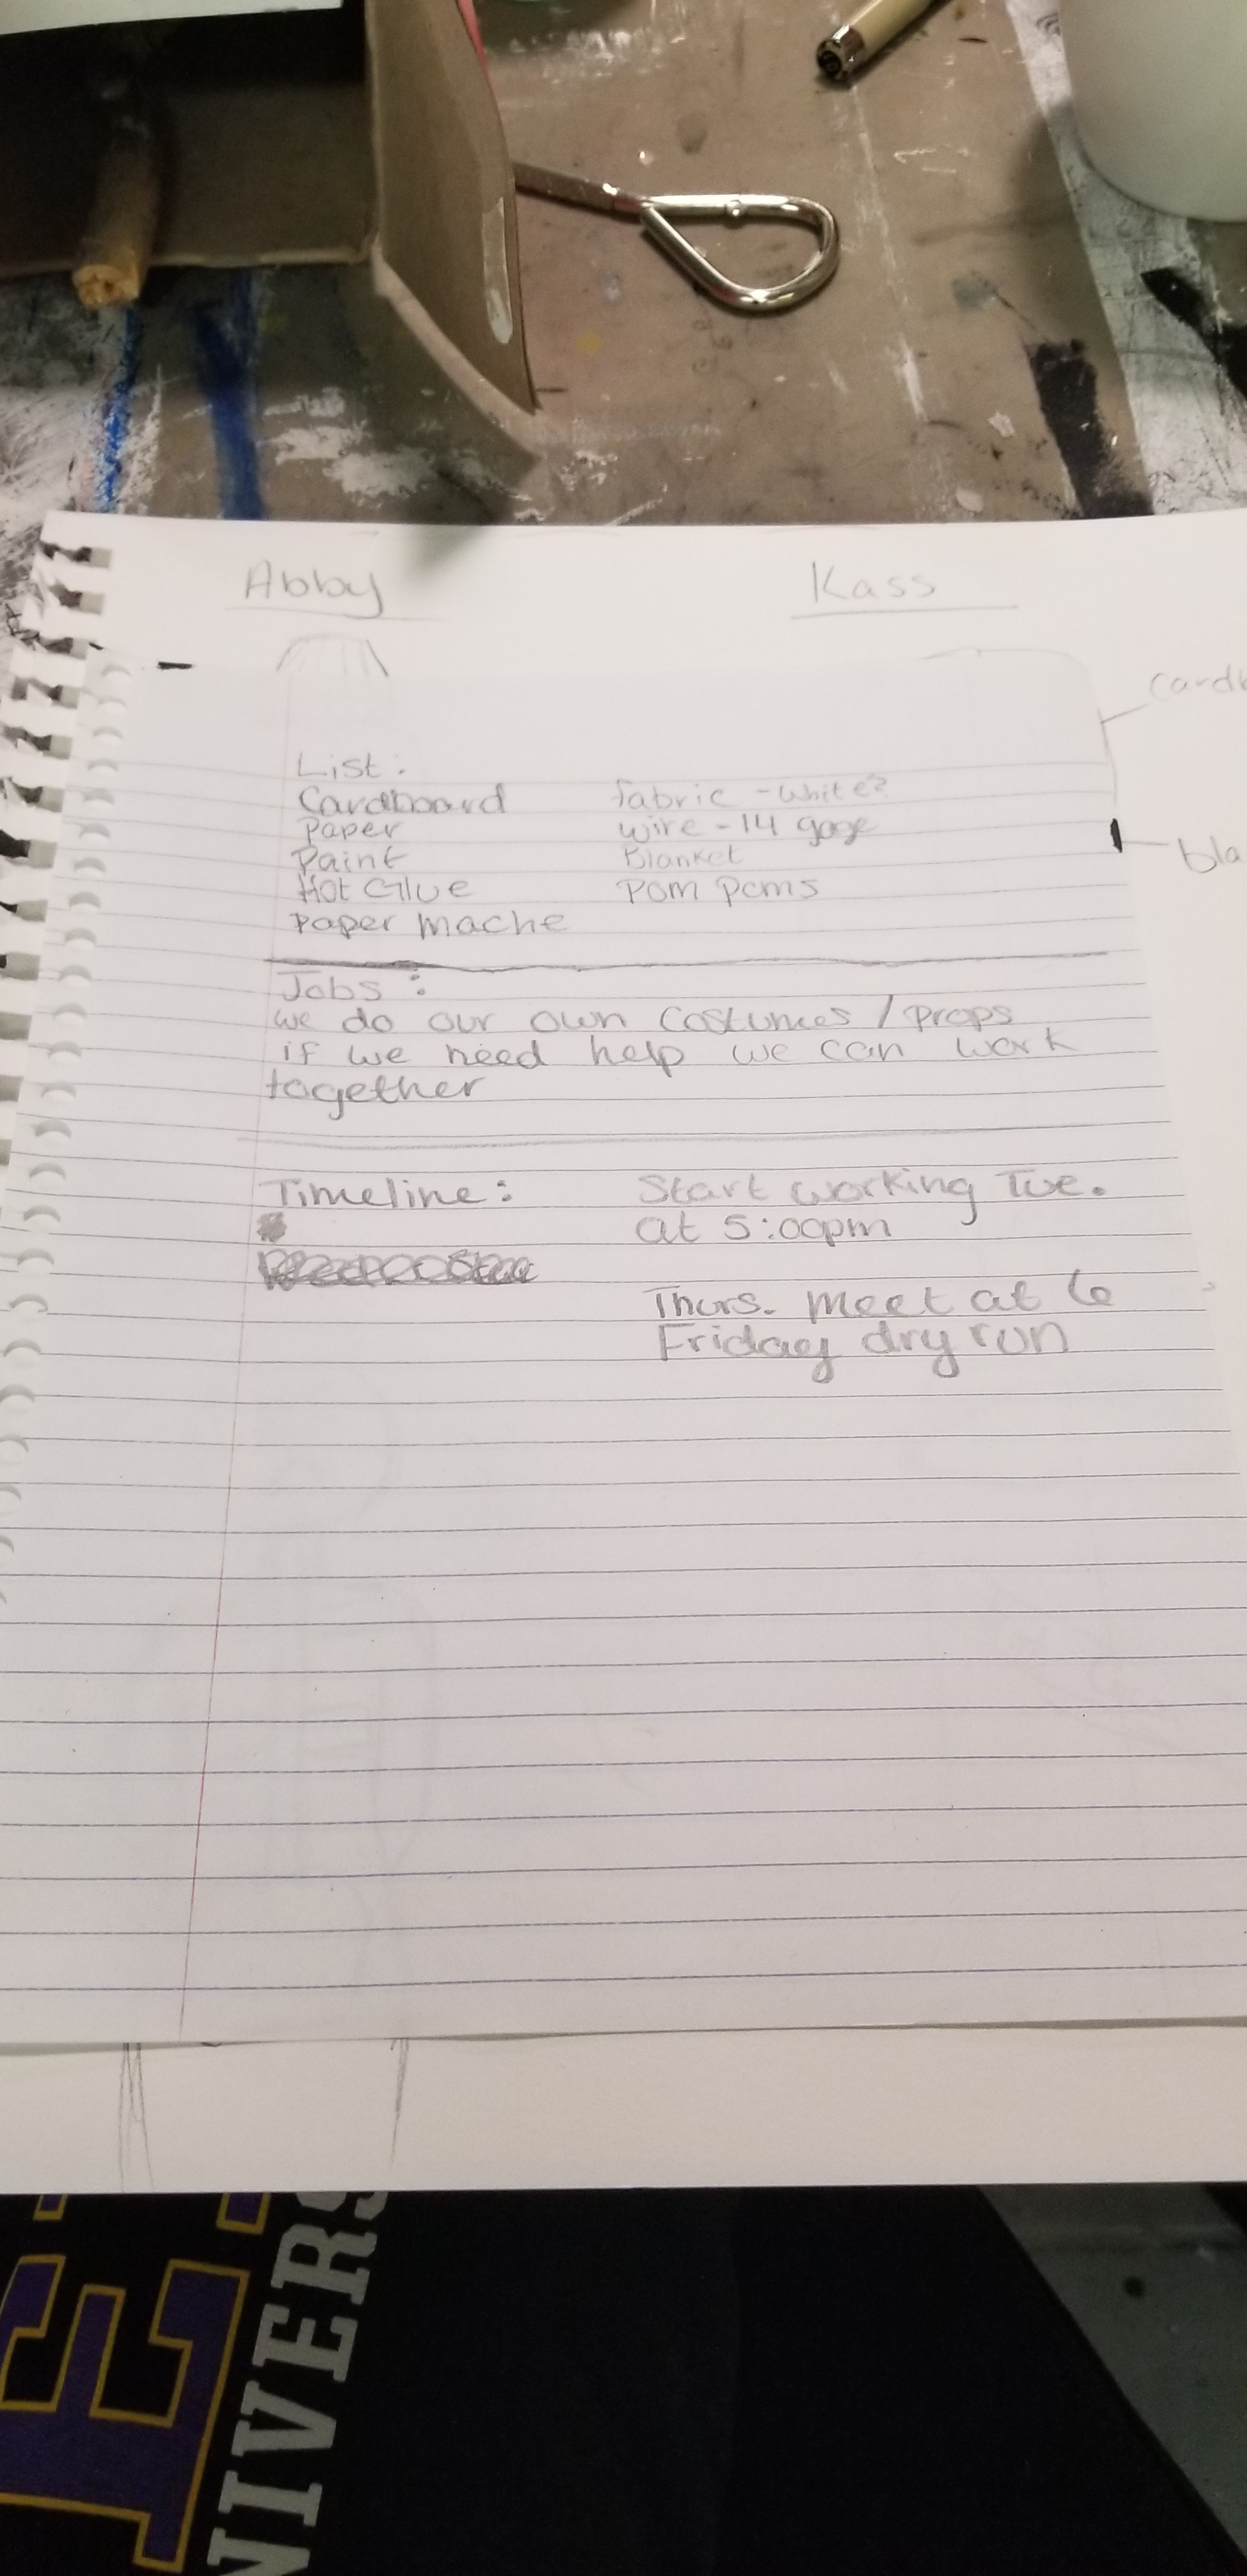 Abby Kass
List:
Cardboard fabric - white?
Paper wire - 14 gage
Paint Blanket
Hot Glue Pom Poms
Paper Mache
Jobs:
we do our own costumes / props
if we need help we can work
together
Timeline: Start working Tue.
at 5:00pm
Thurs. meet at 6
Friday dry run